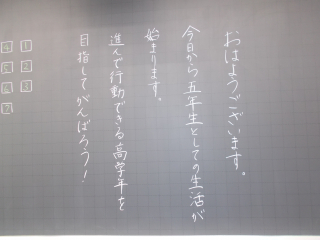 おはようございます。
今日から五年生としての生活が
始まります。
進んで行動できる高学年を
目指してがんばろう！
1 2 3
4 5 6 7